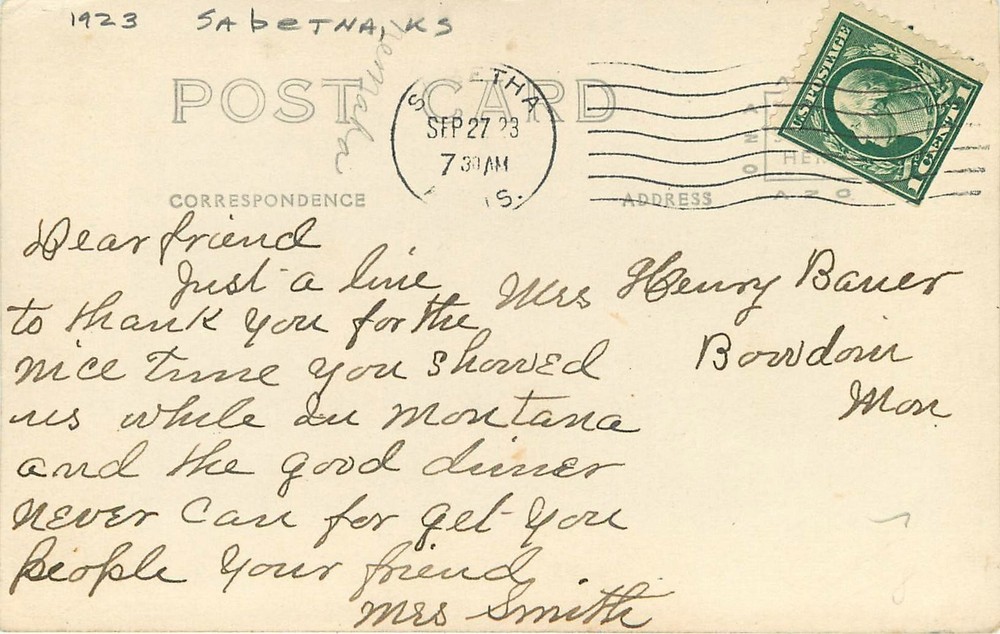 1923 SAbETNA, KS
nemaha
POST CARD
S THA
SEP 27 23
7 30 AM
S.
U.S. POSTAGE
1 CENT 1
HER
CORRESPONDENCE
ADDRESS
Dear friend
Just a line
to thank you for the
nice time you showed
us while in montana
and the good dinner
never can for get you
people your friend
Mrs Smith
Mrs Henry Bauer
Bowdoin
Mon